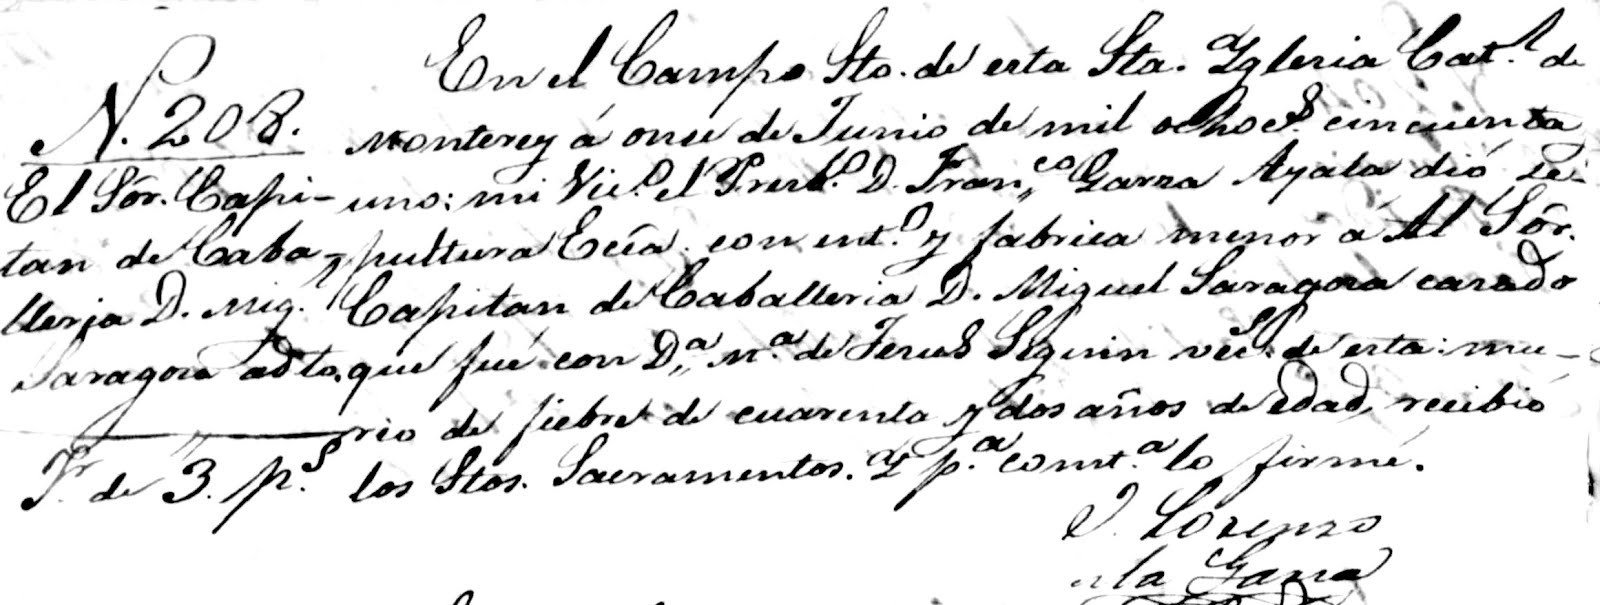 N. 208.
El Sôr. Capi-
tan de Caba-
lleria D. Mig.l
Saragoza adto.
F. de 3. p.s
En el Campo Sto. de esta Sta. Yglesia Cat.l de
Monterey á onse de Junio de mil ochoc.s cincuenta
uno: mi Vic.o el Presb.o D. Fran.co Garza Ayala dió se-
pultura Ecca. con ent.o y fabrica menor á Al Sôr.
Capitan de Caballeria D. Miguel Saragoza casado
que fué con D.a M.a de Jesus Seguin vec.s de esta: mu-
rio de fiebre de cuarenta y dos años de edad, recibió
los Stos. Sacramentos. Y p.a const.a lo firmé.
J. Lorenzo
de la Garza